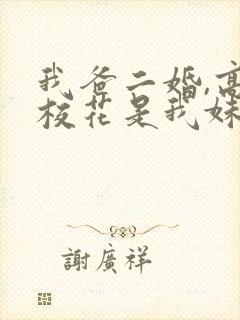 我爸二婚,高
校花是我妹
謝廣祥